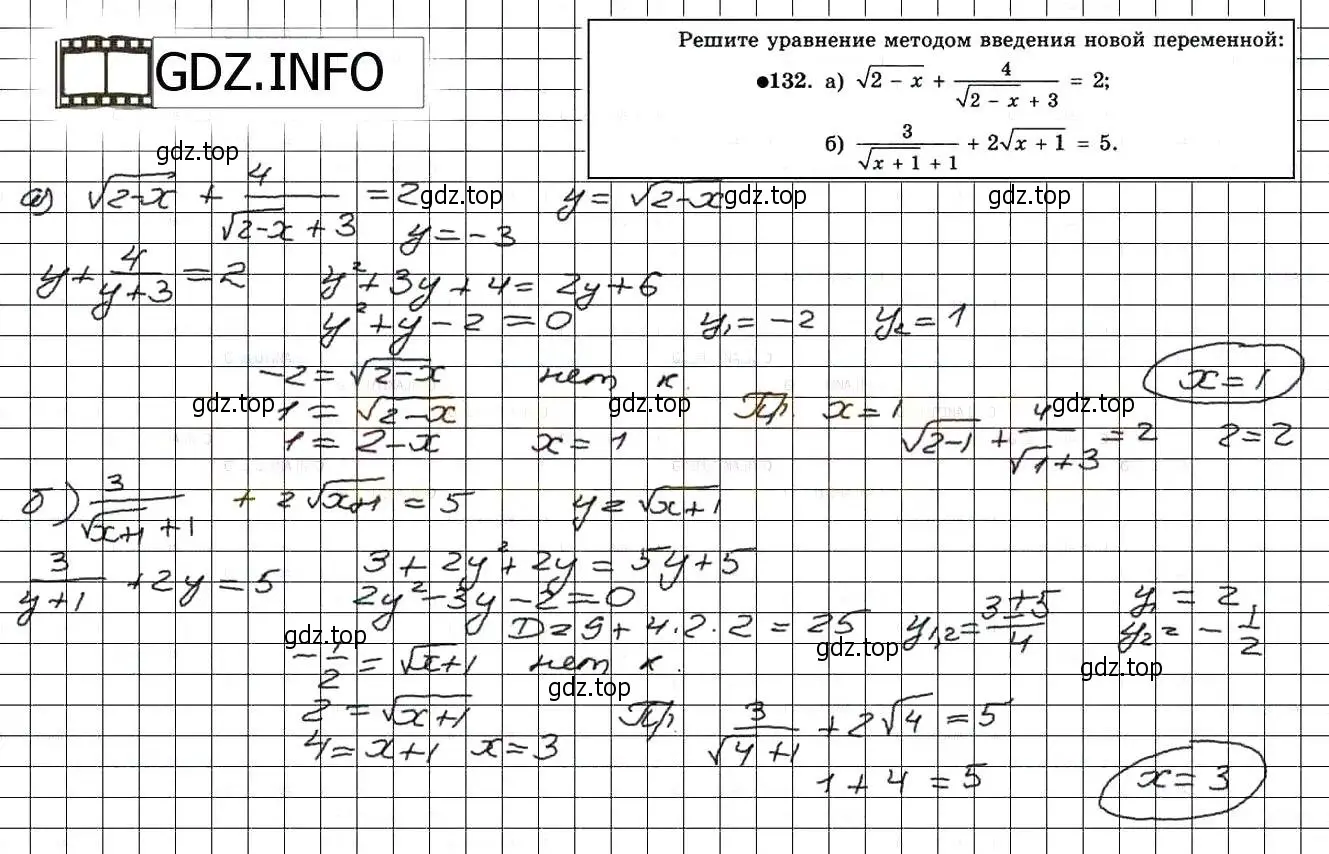 GDZ.INFO
Решите уравнение методом введения новой переменной:
●132. а) √(2 − x) + 4/(√(2 − x) + 3) = 2;
б) 3/(√(x + 1) + 1) + 2√(x + 1) = 5.
gdz.top
а) √(2-x) + 4/(√(2-x) + 3) = 2 gdz.top y = √(2-x) gdz.top gdz.top
y = -3
y + 4/(y+3) = 2 y² + 3y + 4 = 2y + 6
y² + y - 2 = 0 y₁ = -2 y₂ = 1
-2 = √(2-x) нет к. x = 1
gdz.top 1 = √(2-x) gdz.top Пр. x = 1 gdz.top
1 = 2-x x = 1 √(2-1) + 4/(√1+3) = 2 2 = 2
б) 3/(√(x+1) + 1) + 2√(x+1) = 5 y = √(x+1)
3/(y+1) + 2y = 5 3 + 2y² + 2y = 5y + 5
2y² - 3y - 2 = 0
D = 9 + 4·2·2 = 25 y₁,₂ = (3±5)/4 y₁ = 2
y₂ = -1/2
gdz.top gdz.top gdz.top
-1/2 = √(x+1) нет к.
gdz.top
2 = √(x+1) Пр. 3/(√4+1) + 2√4 = 5
4 = x+1 x = 3
1 + 4 = 5 x = 3